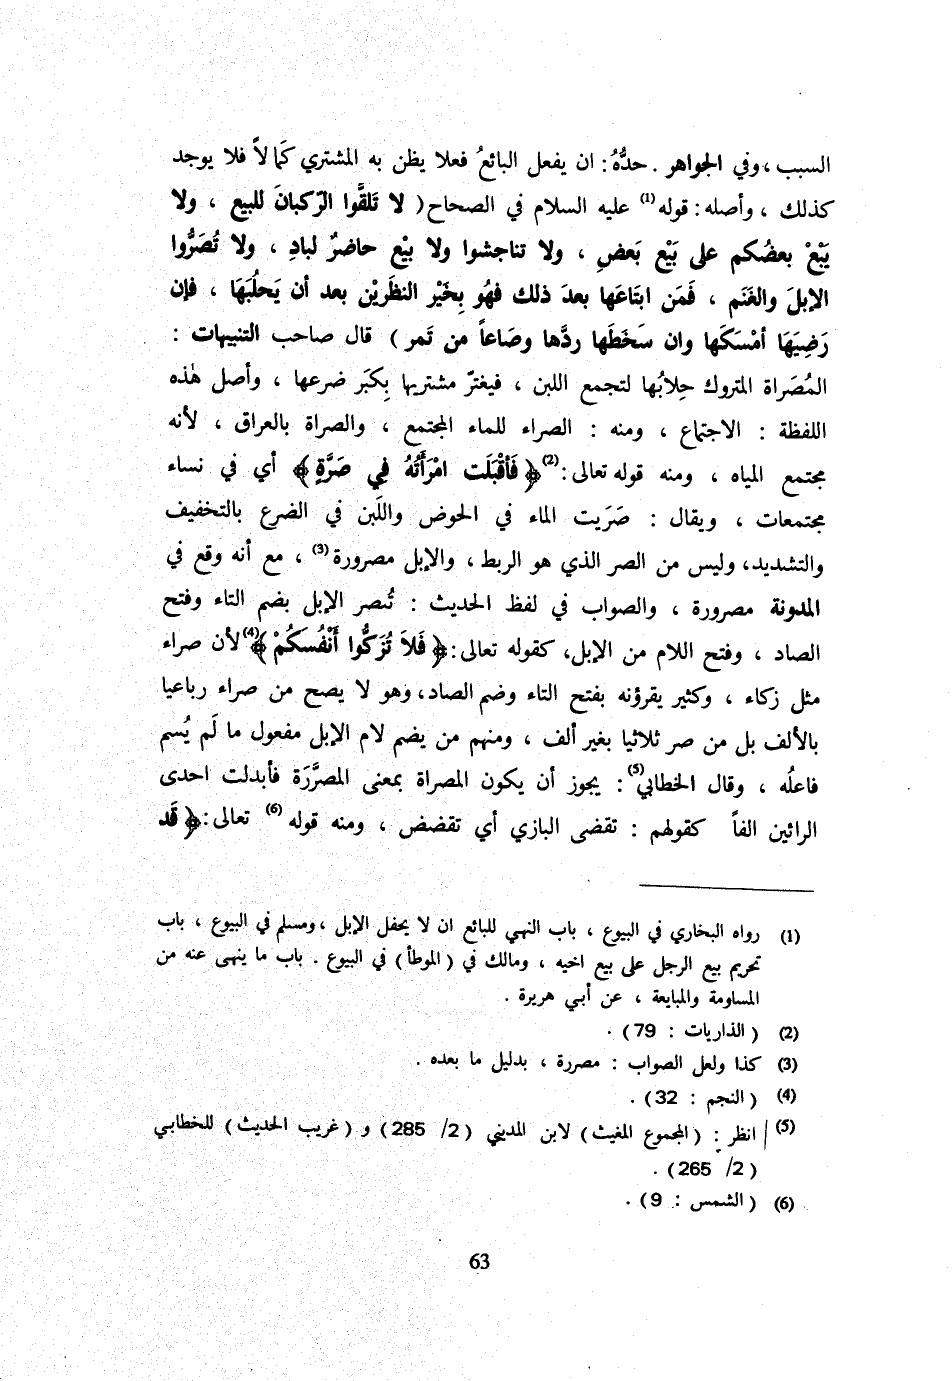 السبب ، وفي الجواهر . حدُّهُ : ان يفعل البائعُ فعلا يظن به المشتري كَمالاً فلا يوجد
كذلك ، وأصله : قوله (1) عليه السلام في الصحاح ( لا تَلقَّوا الرّكبانَ للبيع ، ولا
يَبْعْ بعضُكم على بَيْع بَعضٍ ، ولا تناجشوا ولا بيْع حاضرٌ لبادٍ ، ولا تُصَرُّوا
الإبلَ والغَنَم ، فَمَن ابتَاعَها بعدَ ذلك فهُو بِخَيْر النظَريْن بعد أن يَحلُبَهَا ، فإن
رَضِيَهَا أمْسَكَها وان سَخَطَها ردَّها وصَاعاً من تَمر ) قال صاحب التنبيهات :
المُصَراة المتروك حِلابُها لتجمع اللبن ، فيغترّ مشتريها بِكبَر ضرعها ، وأصل هٰذه
اللفظة : الاجتماع ، ومنه : الصراء للماء المجتمع ، والصراة بالعراق ، لأنه
مجتمع المياه ، ومنه قوله تعالى : (2) ﴿ فَأقْبَلَت امْرَأتُهُ فِي صَرَّةٍ ﴾ أي في نساء
مجتمعات ، ويقال : صَرَيت الماء في الحوض واللَبن في الضرع بالتخفيف
والتشديد ، وليس من الصر الذي هو الربط ، والإبل مصرورة (3) ، مع أنه وقع في
المدونة مصرورة ، والصواب في لفظ الحديث : تُنصر الإبل بضم التاء وفتح
الصاد ، وفتح اللام من الإبل، كقوله تعالى : ﴿ فَلاَ تُزَكُّوا أَنْفُسَكُمْ ﴾ (4) لأن صراء
مثل زكاء ، وكثير يقرؤنه بفتح التاء وضم الصاد ، وهو لا يصح من صراء رباعيا
بالألف بل من صر ثلاثيا بغير ألف ، ومنهم من يضم لام الإبل مفعول ما لَم يُسم
فاعلُه ، وقال الخطابي (5) : يجوز أن يكون المصراة بمعنى المصَّرَرَة فأبدلت احدى
الرائين الفاً كقولهم : تقضى البازي أي تقضض ، ومنه قوله (6) تعالى : ﴿ قَد
(1) رواه البخاري في البيوع ، باب النهي للبائع ان لا يحفل الإبل ، ومسلم في البيوع ، باب
تحريم بيع الرجل على بيع اخيه ، ومالك في ( الموطأ ) في البيوع . باب ما ينهى عنه من
المساومة والمبايعة ، عن أبي هريرة .
(2) ( الذاريات : 79 ) .
(3) كذا ولعل الصواب : مصررة ، بدليل ما بعده .
(4) ( النجم : 32 ) .
(5) انظر : ( المجموع المغيث ) لابن المديني ( 2/ 285 ) و ( غريب الحديث ) للخطابي
( 2/ 265 ) .
(6) ( الشمس : 9 ) .
63